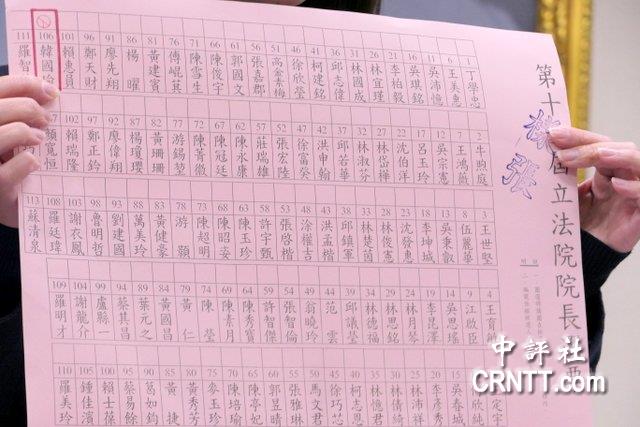 第十
屆立法院院長
樣張
1 丁學忠
6 王美惠
11 吳沛憶
16 吳琪銘
21 李柏毅
26 林宜瑾
31 林國成
36 邱志偉
41 柯建銘
46 徐欣瑩
51 高金素梅
56 張嘉郡
61 郭國文
66 陳俊宇
71 陳雪生
76 傅崐萁
81 黃建賓
86 楊曜
91 廖先翔
96 鄭天財
101 賴惠員
106 韓國瑜
111 羅智
2 牛煦庭
7 王鴻薇
12 吳宗憲
17 呂玉玲
22 沈伯洋
27 林岱樺
32 林淑芬
37 邱若華
42 洪申翰
47 徐富癸
52 張宏陸
57 莊瑞雄
62 陳永康
67 陳冠廷
72 陳菁徽
77 游錫堃
82 黃珊珊
87 楊瓊瓔
92 廖偉翔
97 鄭正鈐
102 賴瑞隆
顏寬恒
3 王世堅
8 伍麗華
13 吳秉叡
18 李坤城
23 沈發惠
28 林俊憲
33 林楚茵
38 邱鎮軍
43 洪孟楷
48 徐權吉
53 張啓楷
58 許宇甄
63 陳玉珍
68 陳昭姿
73 陳超明
78 游顥
83 黃健豪
88 萬美玲
93 劉建國
98 魯明哲
103 謝衣鳳
108 羅廷瑋
113 蘇清泉
4 王育
9 江啟臣
14 吳思瑤
19 李昆澤
24 林月琴
29 林思銘
34 林德福
39 邱議瑩
44 范雲
49 翁曉玲
54 張智倫
59 許智傑
64 陳秀寳
69 陳素月
74 陳瑩
79 黃仁
84 黃國昌
89 葉元之
94 蔡其昌
99 盧縣一
104 謝龍介
109 羅明才
定宇
欣純
15 吳春城
20 李彥秀
25 林倩綺
30 林憶君
柯志恩
45 徐巧芯
50 馬文君
55 張雅琳
60 郭昱晴
65 陳亭妃
70 陳培瑜
75 麥玉珍
80 黃秀芳
85 黃捷
90 葛如鈞
95 蔡易餘
100 賴士葆
105 鍾佳濱
110 羅美玲
中評社
CRNTT.com